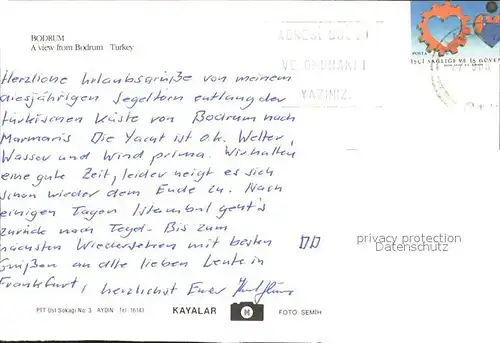 BODRUM
A view from Bodrum Turkey
ADRESİ
VE OKUNAKLI
YAZINIZ.
POSTA
İŞÇİ SAĞLIĞI VE İŞ GÜVEN
Herzliche Urlaubsgrüße von meinem
diesjährigen Segeltörn entlang der
türkischen Küste von Bodrum nach
Marmaris Die Yacht ist o.k. Wetter,
Wasser und Wind prima. Wir hatten
eine gute Zeit, leider neigt es sich
schon wieder dem Ende zu. Nach
einigen Tagen Istambul geht's
zurück nach Tegel. Bis zum
nächsten Wiedersehen mit besten
Grüßen an alle lieben Leute in
Frankfurt, herzlichst Euer
privacy protection
PTT Üst Sokağı No: 3 AYDIN Tel: 16143 KAYALAR FOTO SEMİH